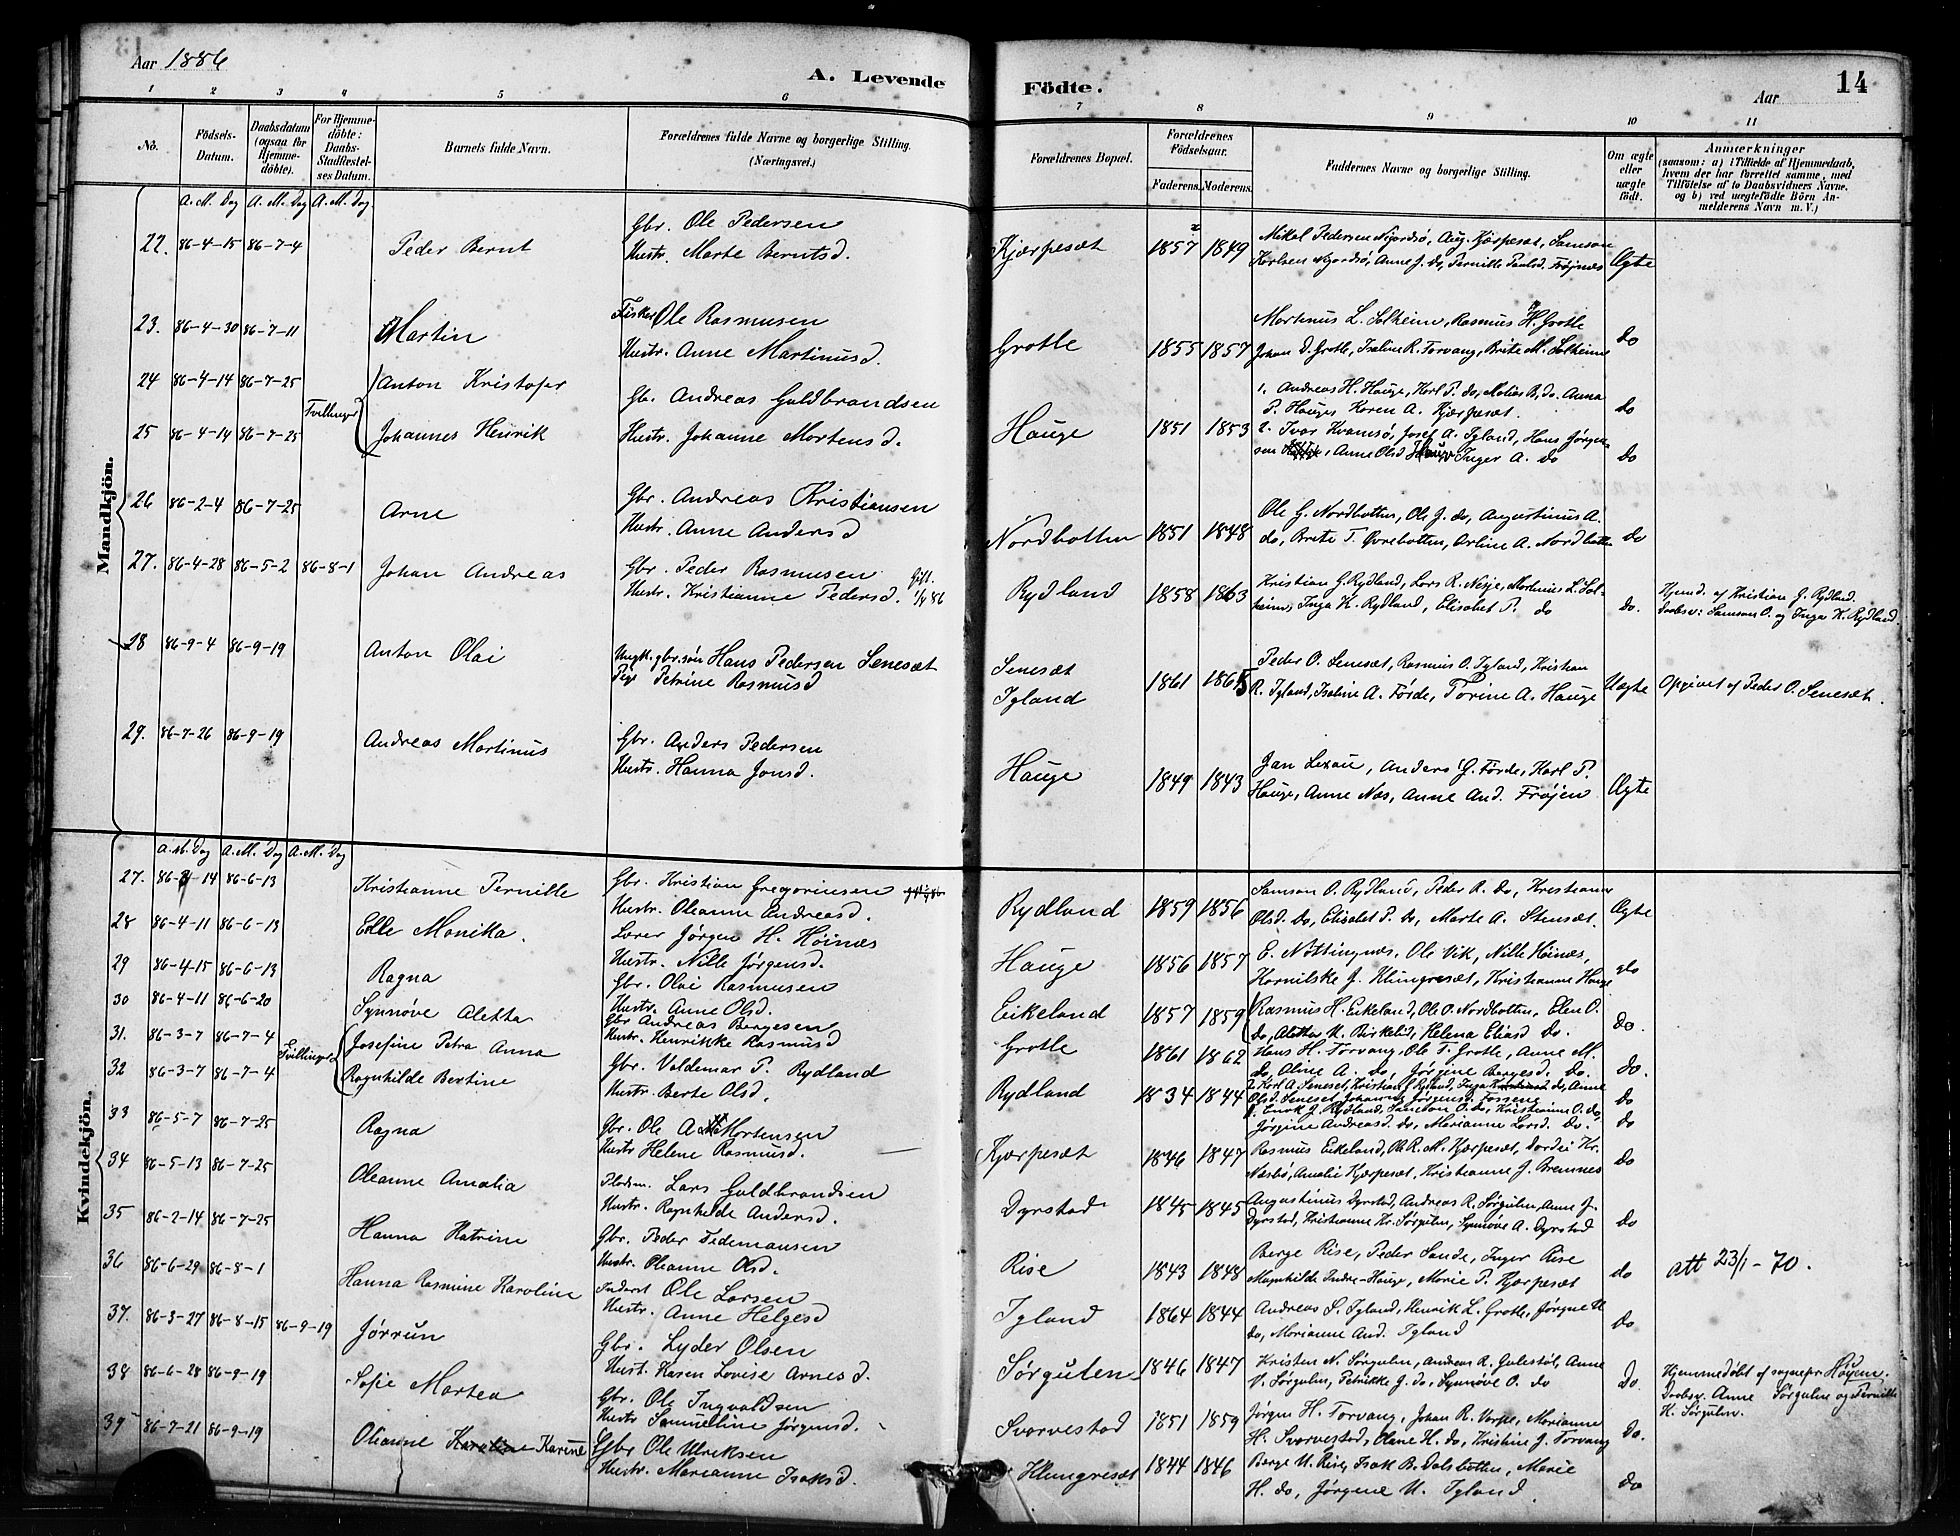 Aar 1886
A. Levende
Födte.
Aar
14
1 2 3 4 5 6 7 8 9 10 11
No.
Födsels-Datum.
Daabsdatum (ogsaa for Hjemme-döbte).
For Hjemme-döbte: Daabs-Stadfæstel-ses Datum.
Barnets fulde Navn.
Forældrenes fulde Navne og borgerlige Stilling.
(Næringsvei.)
Forældrenes Bopæl.
Forældrenes Födselsaar.
Faderens. Moderens.
Faddernes Navne og borgerlige Stilling.
Om ægte eller uægte födt.
Anmærkninger
(saasom: a) i Tilfælde af Hjemmedaab, hvem der har forrettet samme, med Tilföielse af to Daabsvidners Navne, og b) ved uægtefödte Börn Anmelderens Navn m. V.)
Mandkjön.
A. M. Dag A. M. Dag A. M. Dag
22. 86-4-15 86-7-4 Peder Bernt Gbr. Ole Pedersen
Hustr. Marte Berntsd. Kjærpesæt 1857 1849 Mikal Pedersen Njordsø, Aug. Kjærpesæt, Samson
Karlsen Njordsø, Anne J. do, Pernille Paulsd. Frøjnes Ægte
23. 86-4-30 86-7-11 Martin Fisker Ole Rasmusen
Hustr. Anne Martinusd. Grotle 1855 1857 Martinus L. Solheim, Rasmus H. Grotle
Johan D. Grotle, Iseline R. Torvang, Brite M. Solheim do
24 86-4-14 86-7-25 Tvillinger Anton Kristofer Gbr. Andreas Guldbrandsen
25 86-4-14 86-7-25 Johannes Henrik Hustr. Johanne Mortensd. Hauge 1851 1853
1. Andreas H. Hauge, Karl P. do, Matias B. do. Anna
P. Hauges Karen A. Kjærpesæt. do
2. Ivar Kvamsø, Josef A. Igland, Hans Jørgen-
sen, Anne Olsd Inger A. do do
26 86-2-4 86-7-25 Arne Gbr. Andreas Kristiansen
Hustr. Anne Andersd Nordbotten 1851 1848 Ole G. Nordbotten, Ole J. do, Augustinus A.
do, Brete T. Øvrebotten, Arline A. Nordbotten do
27. 86-4-28 86-5-2 86-8-1 Johan Andreas Gbr. Peder Rasmusen Gift.
Hustr. Kristianne Pedersd. 86 Rydland 1858 1863 Kristian G. Rydland, Lars R. Nesje, Martinus L. Sol-
heim, Inga K. Rydland, Elisabet P. do do. Hjemd. af Kristian G. Rydland.
Daabsv: Samson O. og Inga K. Rydland.
28 86-9-4 86-9-19 Anton Olai Ungk. gbr. søn Hans Pedersen Senesæt
Pige Petrine Rasmusd Senesæt
Igland 1861 1865 Peder O. Senesæt, Rasmus O. Igland, Kristian
R. Igland, Iseline A. Førde, Torine A. Hauge Uægte Opgivet af Peder O. Senesæt.
29. 86-7-26 86-9-19 Andreas Martinus Gbr. Anders Pedersen
Hustr. Hanna Jonsd. Hauge 1849 1843 Jan Lexau, Anders G. Førde, Karl P.
Hauge, Anne Næs, Anne And. Frøjen Ægte
Kvindekjön.
A. M. Dag A. M. Dag A. M. Dag
27. 86-14 86-6-13 Kristianne Pernille Gbr. Kristian Gregoriusen
Hustr. Oleanne Andreasd. Rydland 1859 1856 Samson O. Rydland, Peder R. do, Kristianne
Olsd. do, Elisabet P. do, Marte A. Stensæt. Ægte
28 86-4-11 86-6-13 Elle Monikka. Lærer Jørgen H. Høinæs
Hustr. Nille Jørgensd. Hauge 1856 1857 E. Nøttingnæs, Ole Vik, Nille Høinæs,
Hornilske J. Klungresæt, Kristianne Hauge do
29 86-4-15 86-6-13 Ragna Gbr. Olai Rasmusen
Hustr. Anne Olsd. Eikeland 1857 1859 Rasmus H. Eikeland, Ole O. Nordbotten, Elen O.
do, Aletta H. Birkelid, Helena Eliasd do. do.
30 86-4-11 86-6-20 Synnøve Aletta Gbr Andreas Børgesen
Hustr. Henrikke Rasmusd Grotle 1861 1862 Hans H. Torvang, Ole T. Grotle, Anne M.
do, Oline A. do, Jørgine Børgesd. do. do.
31. 86-3-7 86-7-4 Tvillinger Josefine Petra Anna Gbr. Valdemar P. Rydland
32 86-3-7 86-7-4 Ragnhilde Bertine Hustr. Berte Olsd. Rydland 1834 1844
2 Karl A. Seneset, Kristian G Rydland, Inga do, Anne
Olsd. Seneset, Johanna Jørgensd. Fosseng do
1. Enok J. Rydland, Samson O. do, Kristianne O. do,
Jørgine Andreasd. do, Marianne Larsd. do. do
33 86-5-7 86-7-25 Ragna Gbr. Ole Mortensen
Hustr Helene Rasmusd. Kjærpesæt 1846 1847 Rasmus Eikeland, Ole R. M. Kjærpesæt, Dordei Kr.
Næsbø, Amalie Kjærpesæt, Kristianne J. Bremnes do
34 86-5-13 86-7-25 Oleanne Amalia Pladsm. Lars Guldbrandsen
Hustr. Ragnhilde Andersd. Dyrstad 1845 1845 Augustinus Dyrstad, Andreas R. Sørgulen, Anne J.
Dyrstad, Kristianne Kr. Sørgulen, Synnøve A. Dyrstad do
35 86-2-14 86-7-25 Hanna Katrine Gbr. Peder Tidemansen
Hustr. Oleanne Olsd. Rise 1843 1848 Berge Rise, Peder Sande, Inger Rise
Magnhilde Indre-Hauge, Marie P. Kjærpesæt do att 23/1-70.
36 86-6-29 86-8-1 Hanna Rasmine Karoline Inderst Ole Larsen
Hustr. Anne Helgesd Igland 1864 1844 Andreas S. Igland, Henrik L. Grotle, Jørgne U
do, Marianne And. Igland do
37. 86-3-27 86-8-15 86-9-19 Jørrun Gbr. Lyder Olsen
Hust. Karen Lovise Arnesd. Sørgulen 1846 1847 Kristen N. Sørgulen, Andreas R. Gulestøl, Anne
V. Sørgulen, Petrikke J. do, Synnøve O. do do. Hjemmedøbt af sognepr. Høyem.
Daabsv. Anne Sørgulen og Pernille
K. Sørgulen.
38 86-6-28 86-9-19 Sofie Martea Gbr. Ole Ingvaldsen
Hustr Samueline Jørgensd. Svarvestad 1851 1859 Jørgen H. Torvang, Johan R. Varpe, Marianne
H. Svarvestad, Olane H. do, Kristine J. Torvang do.
39 86-7-21 86-9-19 Oleanne Karoline Karine Gbr Ole Ulriksen
Hustr. Marianne Isaksd. Klungresæt 1844 1846 Berge U. Rise, Isak B. Dalsbotten, Marie
H. do, Jørgene U. Igland do